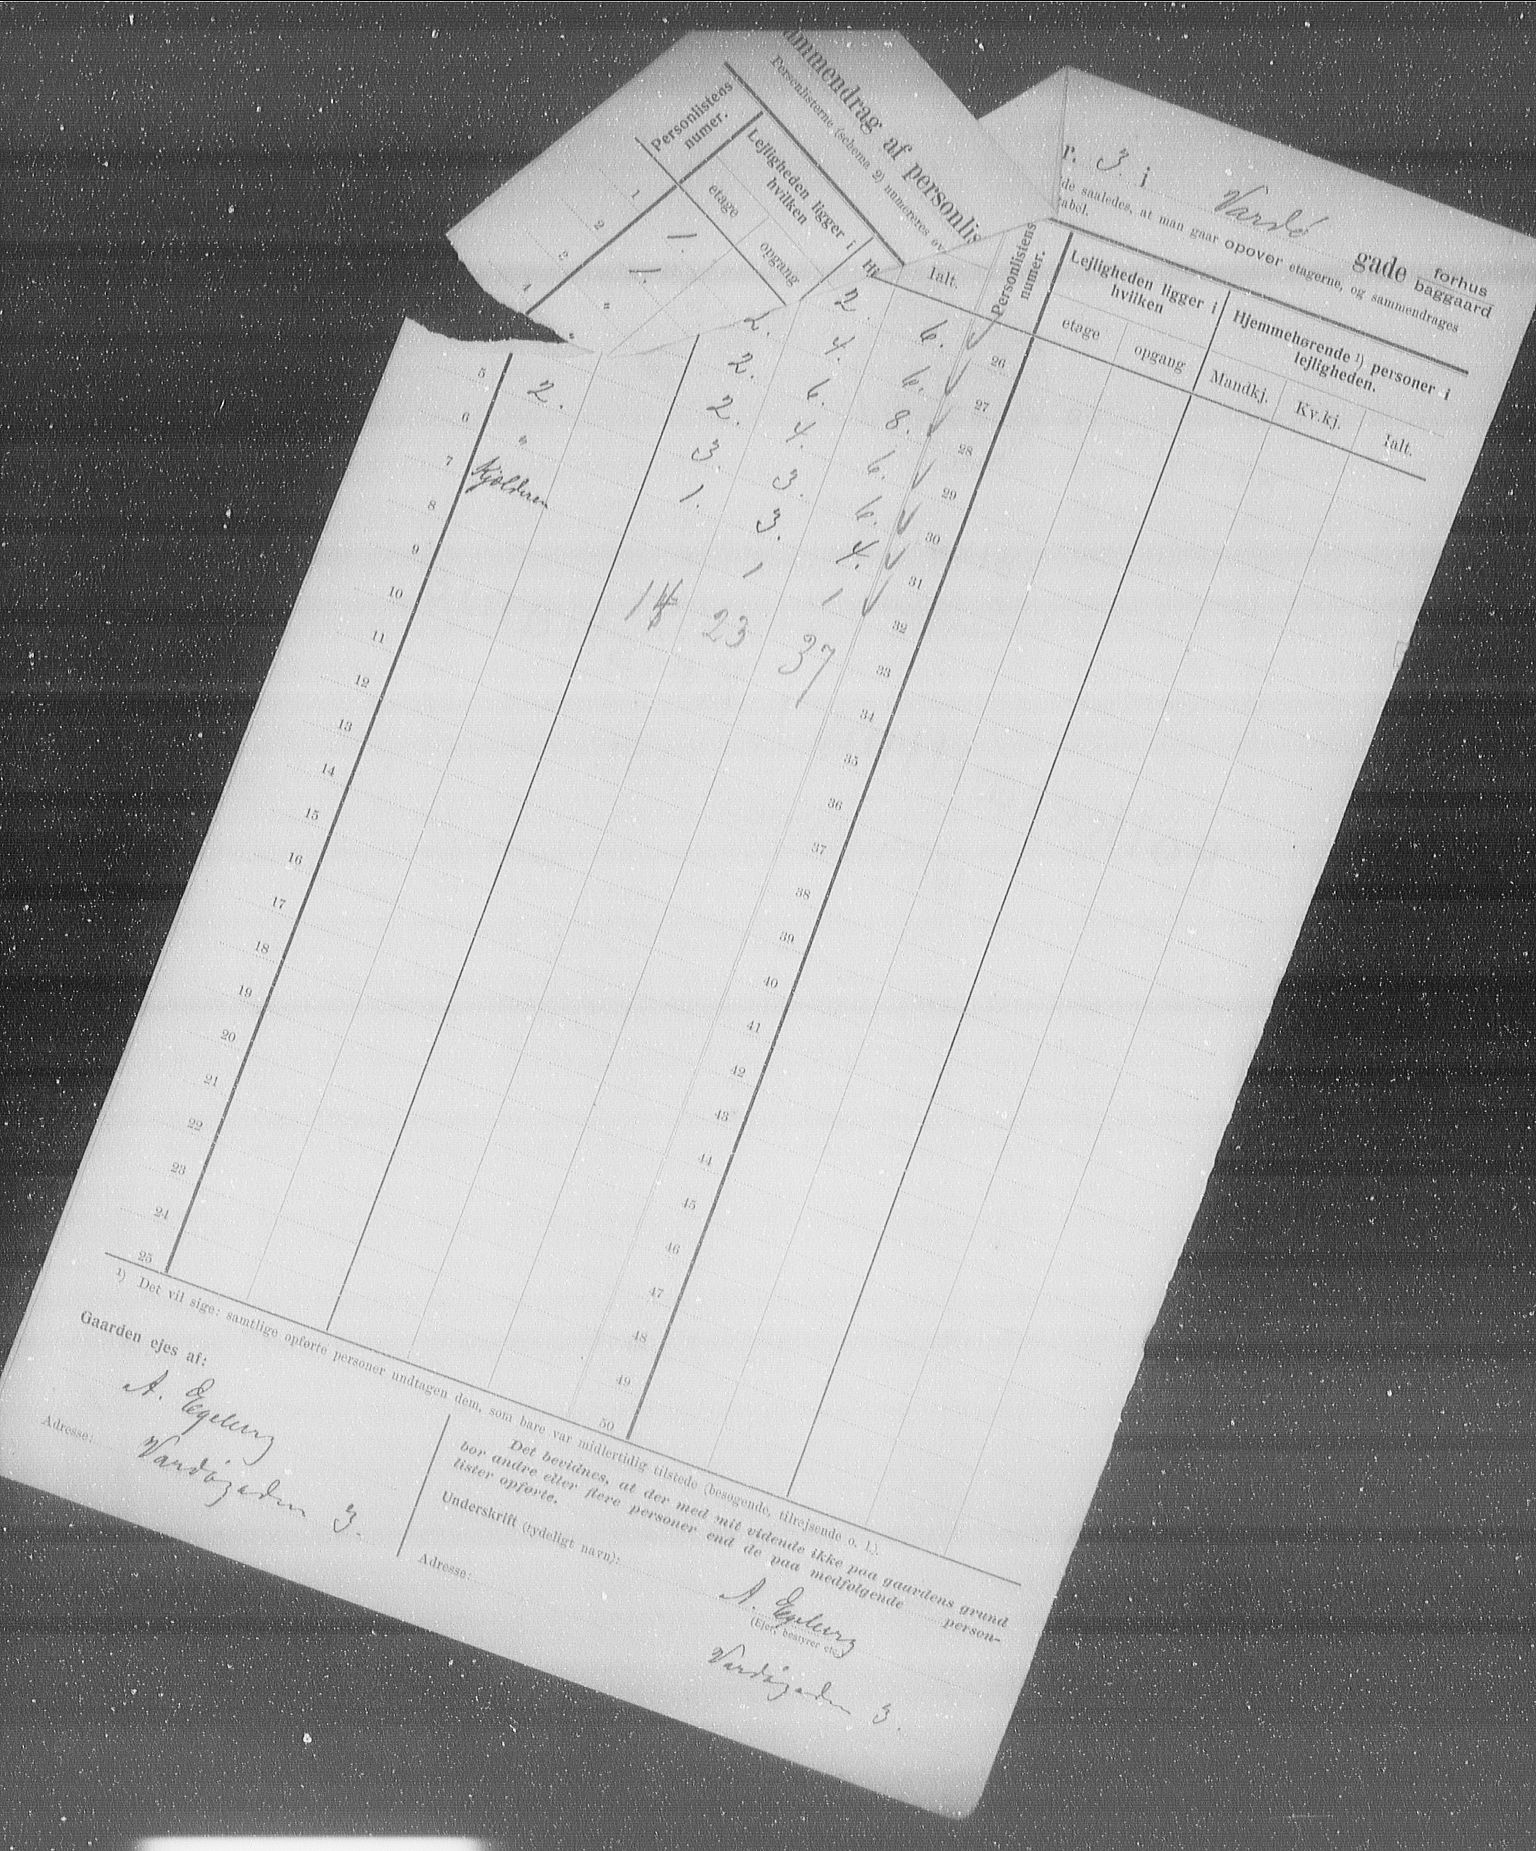 mmendrag af personlis
Personlisterne (schema 2) numereres ov
r. 3. i Vardø gade forhus
baggaard
de saaledes, at man gaar opover etagerne, og sammendrages
tabel.
Personlistens numer.
Lejligheden ligger i hvilken
etage
opgang
Ialt.
Personlistens numer.
Lejligheden ligger i hvilken
etage
opgang
Hjemmehørende ¹) personer i lejligheden.
Mandkj.
Kv.kj.
Ialt.
1 1.
2 1.
3 "
4 "
5 2.
6 "
7 Kjølderen
8
9
10
11
12
13
14
15
16
17
18
19
20
21
22
23
24
25
2. 6.
2. 4. 6.
2. 6. 8.
2. 4. 6.
3. 3. 6.
1. 3. 4.
1 1
14 23 37
26
27
28
29
30
31
32
33
34
35
36
37
38
39
40
41
42
43
44
45
46
47
48
49
50
¹) Det vil sige: samtlige opførte personer undtagen dem, som bare var midlertidig tilstede (besøgende, tilrejsende o. l.).
Gaarden ejes af:
A. Egeberg
Adresse: Vardøgaden 3.
Det bevidnes, at der med mit vidende ikke paa gaardens grund
bor andre eller flere personer end de paa medfølgende person-
lister opførte.
Underskrift (tydeligt navn): A. Egeberg
(Ejer, bestyrer etc.)
Adresse: Vardøgaden 3.